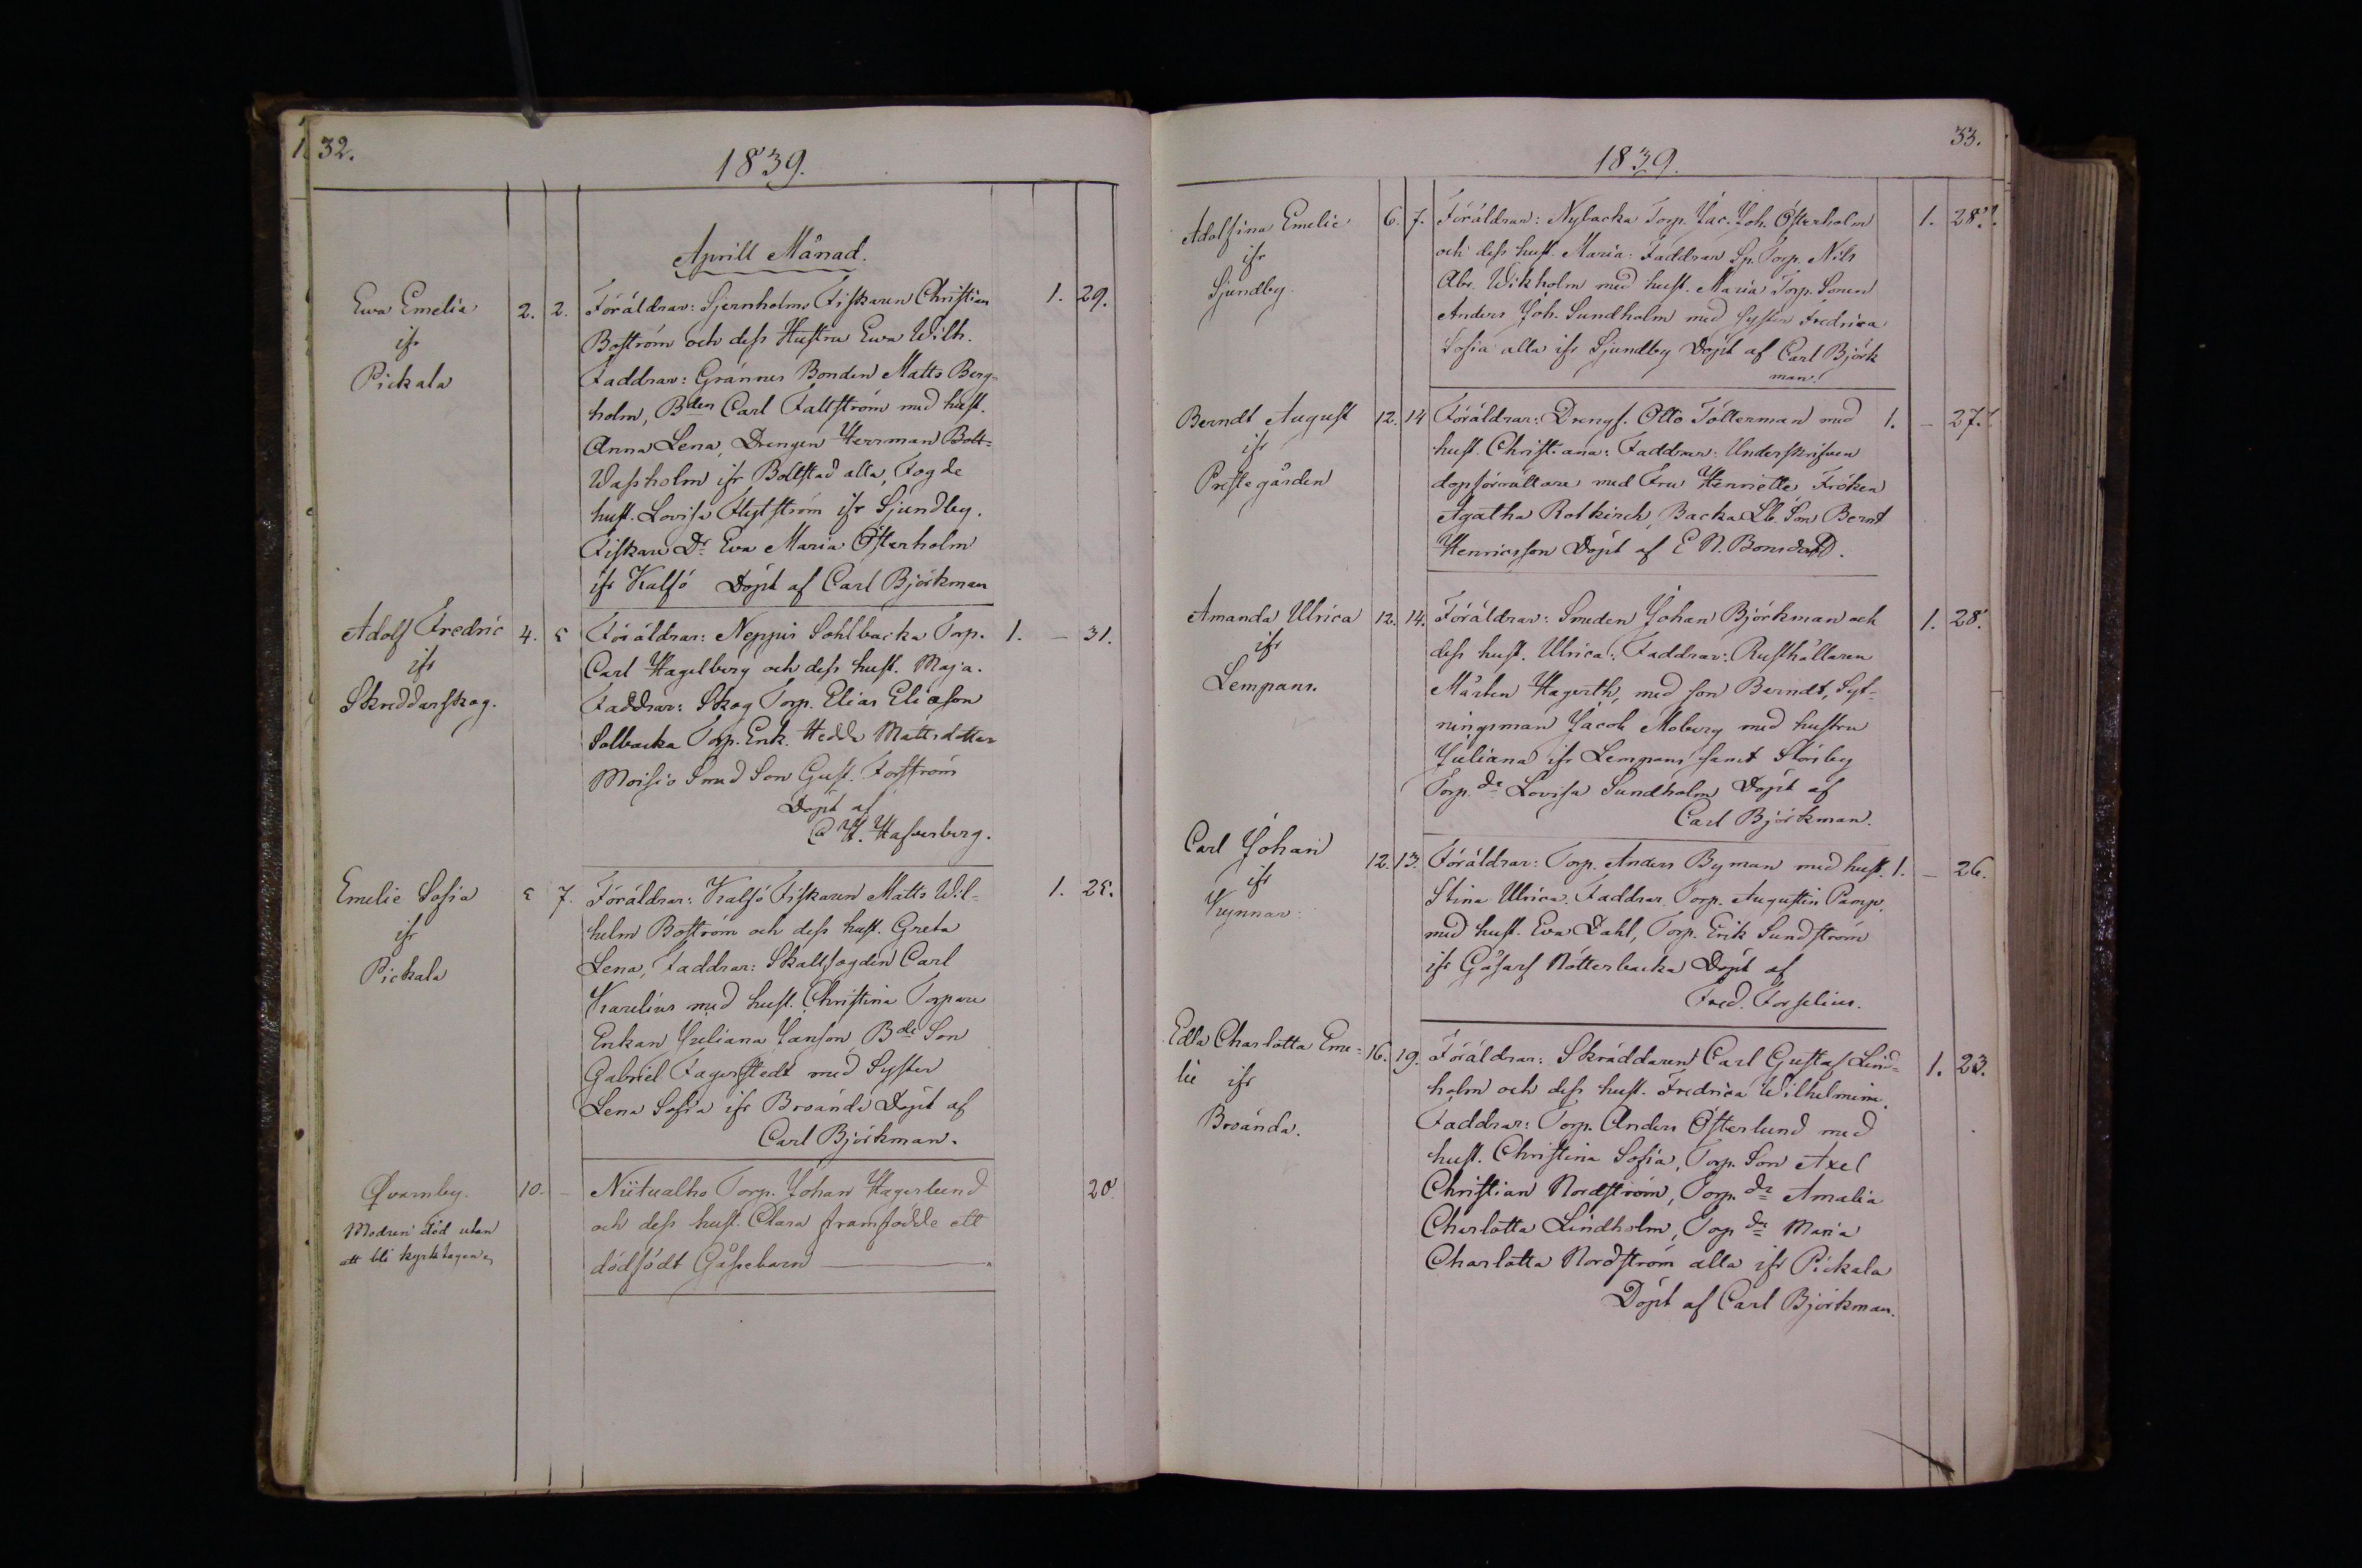 32.
1839.
Aprill Månad.
Ewa Emelia 2. 2. Föräldrar: Sjernholms Fiskaren Christian 1. 29.
ifr Boström och dess Hustru Ewa Wilh.
Pickala Faddrar: Grännes Bonden Matts Berg-
holm, Bden Carl Fallström med hust.
Anna Lena, Drengen Herrman Bolt-
Wassholm ifr Boltstad alla, Fogde
hust. Lovisa Flytström ifr Sjundby.
Fiskare Dr Eva Maria Österholm
ifr Kalfö Döpt af Carl Björkman
Adolf Fredric 4. 5 Föräldrar: Neppis Sohlbacka Torp. 1. – 31.
ifr Carl Hagelberg och dess hust. Maja.
Skreddarskog. Faddrar: Skog Torp. Elias Eliason
Solbacka Torp. Enk. Hedda Mattsdotter
Moisio Smed Son Gust. Forsström
Döpt af
C H. Hafverberg.
Emelie Sofia 5 7. Föräldrar: Kalfö Fiskaren Matts Wil- 1. 25.
ifr helm Boström och dess hust. Greta
Pickala Lena, Faddrar: Skallfogden Carl
Karelius med hust. Christina Torpare
Enkan Juliana Janson, Bde Son
Gabriel Fagerstedt med Syster
Lena Sofia ifr Broända Döpt af
Carl Björkman.
Qvarnby. 10. – Niitualho Torp. Johan Hagerlund 20
Modren död utan och dess hust. Clara framfödde ett
att bli kyrktagen dödfödt Gåssebarn
33.
1839.
Adolfina Emelie 6. 7. Föräldrar: Nybacka Torp. Jac. Joh. Österholm 1. 28.
ifr och dess hust. Maria: Faddrar Sp. Torp. Nils
Sjundby Abr. Wikholm med hust. Maria Torp. Sonen
Anders Joh. Sundholm med Syster Fredrica
Sofia alla ifr Sjundby Döpt af Carl Björk
man.
Berndt August 12. 14 Föräldrar: Drengf. Otto Tölterman med 1. – 27.
ifr hust. Christiana: Faddrar: Underskrifven
Prestegården dopförrättare med Fru Henriette Fröken
Agatha Rotkirch, Backa Lb. Son Bernt
Henricsson Döpt af E N. Bonsdorff.
Amanda Ulrica 12. 14. Föräldrar: Smeden Johan Björkman och 1. 28.
ifr dess hust. Ulrica: Faddrar: Rusthållaren
Lempans. Mårten Hagerth, med son Berndt, Syt-
ningsman Jacob Moberg med hustru
Juliana ifr Lempans samt Störsby
Torp. dr Lovisa Sundholm Döpt af
Carl Björkman.
Carl Johan 12. 13. Föräldrar: Torp. Anders Byman med hust. 1. – 26.
ifr Stina Ulrica. Faddrar. Torp. Augustin Pamp.
Kynnar. med hust. Eva Dahl, Torp. Erik Sundström
ifr Gåsars Nötterbacka Döpt af
Fred. Forselius.
Edla Charlotta Eme- 16. 19. Föräldrar: Skräddaren Carl Gustaf Lind- 1. 23.
lie ifr holm och dess hust. Fredrica Wilhelmina.
Broända. Faddrar: Torp. Anders Österlund med
hust. Christina Sofia, Torp. Son Axel
Christian Nordström, Torp. dr Amalia
Charlotta Lindholm, Torp dr Maria
Charlotta Nordström alla ifr Pickala
Döpt af Carl Björkman.